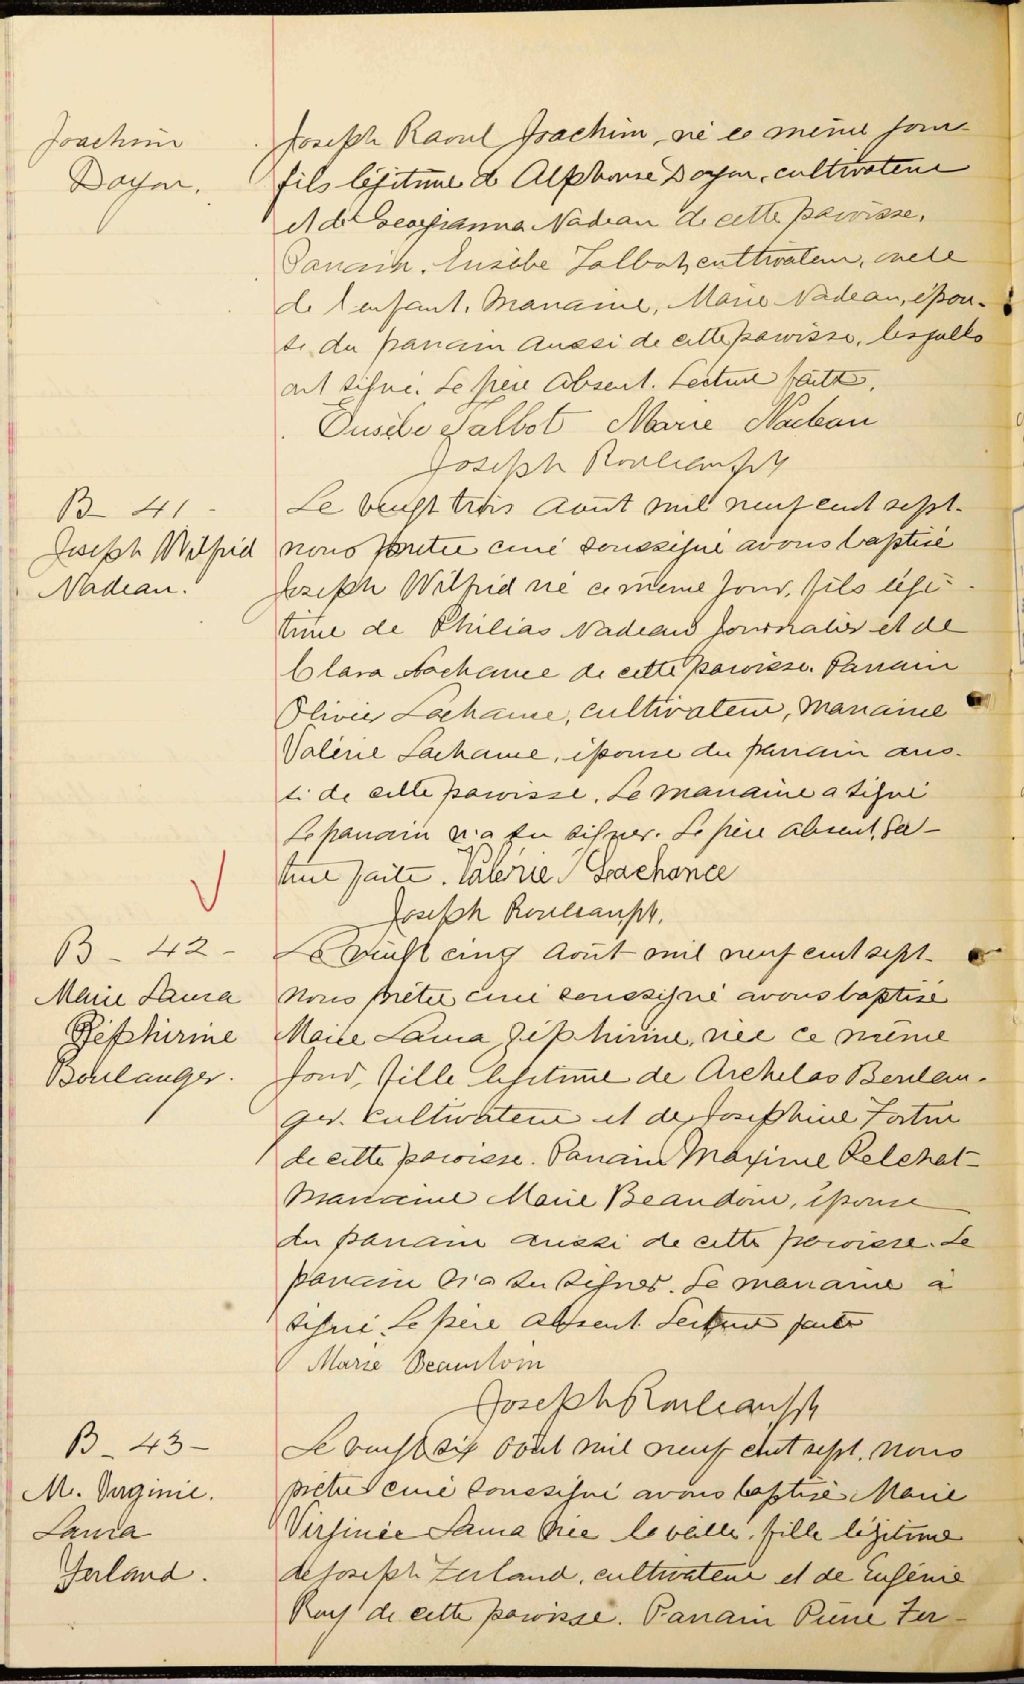 Joachim
Doyon.
Joseph Raoul Joachim, né ce même jour
fils légitime de Alphonse Doyon, cultivateur
et de Georgianna Nadeau de cette paroisse.
Parrain, Eusèbe Talbot, cultivateur, oncle
de l'enfant. Marraine, Marie Nadeau, épou-
se du parrain aussi de cette paroisse, lesquels
ont signé. Le père absent. Lecture faite.
Eusèbe Talbot Marie Nadeau
Joseph Rouleau, ptr
B - 41 -
Joseph Wilfrid
Nadeau.
Le vingt trois août mil neuf cent sept.
nous prêtre curé soussigné avons baptisé
Joseph Wilfrid né ce même jour, fils légi-
time de Philias Nadeau journalier et de
Clara Lachance de cette paroisse. Parrain
Olivier Lachance, cultivateur, marraine
Valérie Lachance, épouse du parrain aus-
si de cette paroisse. La marraine a signé
Le parrain n'a su signer. Le père absent, Lec-
ture faite. Valérie Lachance
Joseph Rouleau, ptr.
B - 42 -
Marie Laura
Zéphirine
Boulanger.
Le vingt cinq août mil neuf cent sept.
Nous prêtre curé soussigné avons baptisé
Marie Laura Zéphirine, née ce même
jour, fille légitime de Archelas Boulan-
ger. cultivateur et de Joséphine Fortin
de cette paroisse. Parrain Maxime Pelchat-
marraine Marie Beaudoin, épouse
du parrain aussi de cette paroisse. Le
parrain n'a su signer. La marraine a
signé. Le père absent. Lecture faite
Marie Beaudoin
Joseph Rouleau, ptr
B - 43 -
M. Virginie.
Laura
Ferland.
Le vingt six août mil neuf cent sept, nous
prêtre curé soussigné avons baptisé Marie
Virginie Laura née la veille. fille légitime
de Joseph Ferland, cultivateur et de Eugénie
Roy de cette paroisse. Parrain Pierre Fer-